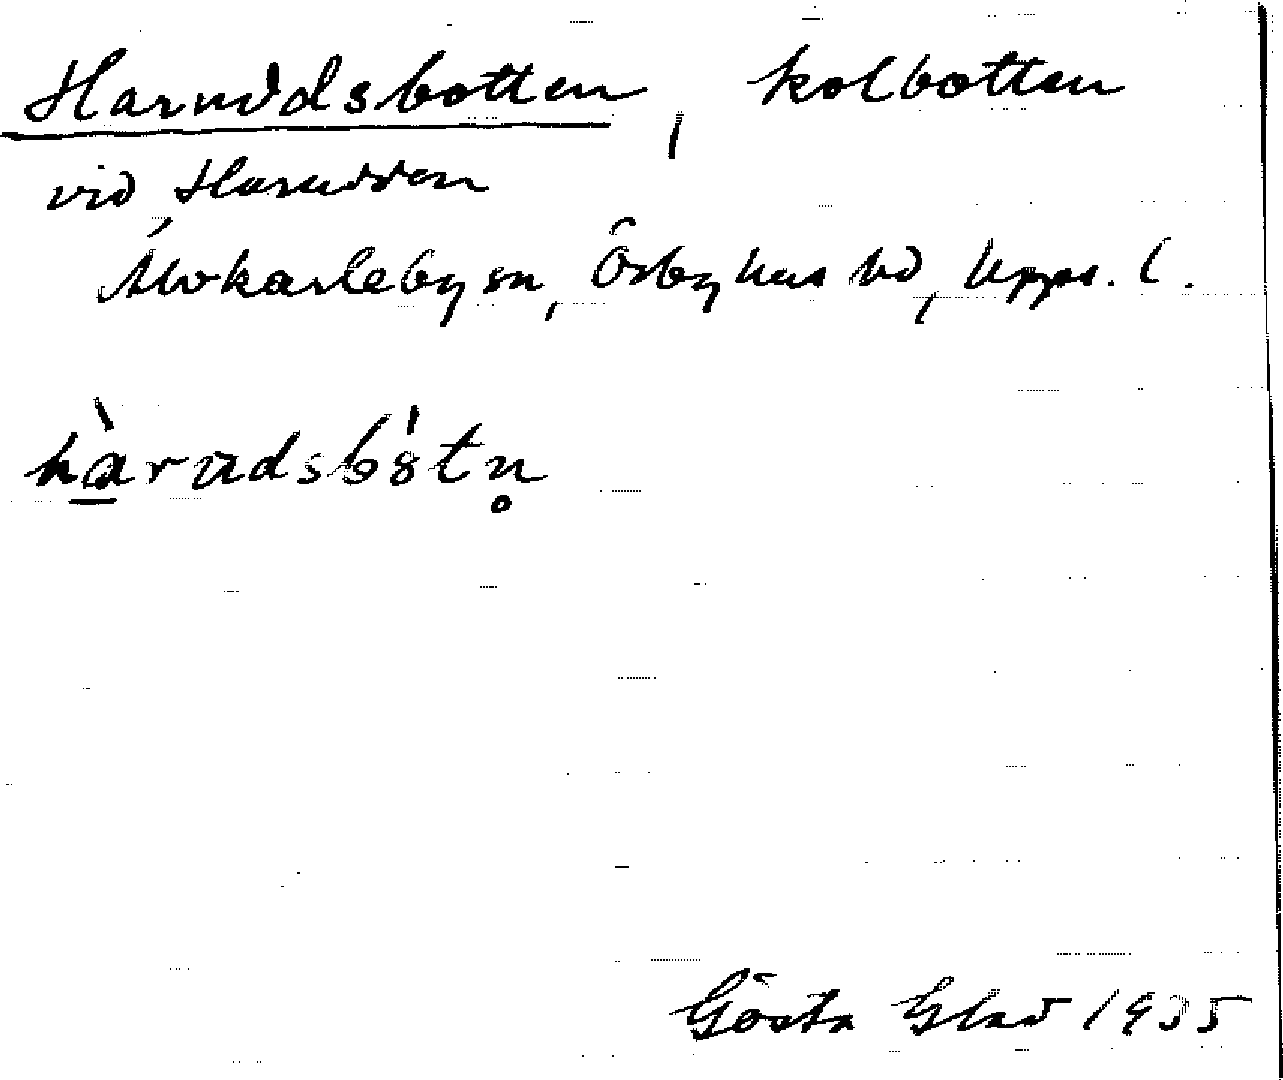 Haruddsbotten, kolbotten
vid Harudden
Älvkarleby sn, Örbyhus hd, Upps. l.
hàrudsbȯ́tn̥
Gösta Glad 1935